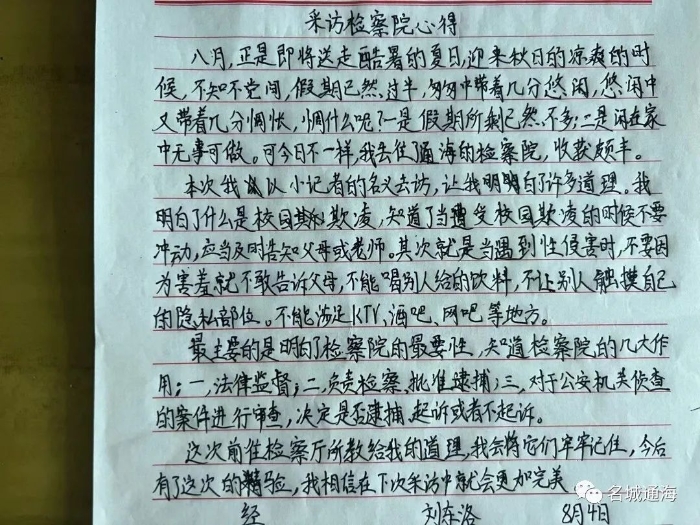 采访检察院心得
八月,正是即将送走酷暑的夏日,迎来秋日的凉爽的时
候,不知不觉间,假期已然过半,匆匆中带着几分悠闲,悠闲中
又带着几分惆怅,惆什么呢?一是假期所剩已然不多;二是闲在家
中无事可做。可今日不一样,我去往了通海的检察院,收获颇丰。
本次我以小记者的名义去访,让我明白了许多道理。我
明白了什么是校园欺凌,知道了当遭受校园欺凌的时候不要
冲动,应当及时告知父母或老师。其次就是当遇到性侵害时,不要因
为害羞就不敢告诉父母,不能喝别人给的饮料,不让别人触摸自己
的隐私部位。不能涉足KTV、酒吧、网吧等地方。
最主要的是明白了检察院的最要性,知道检察院的几大作
用;一,法律监督;二,负责检察、批准逮捕;三,对于公安机关侦查
的案件进行审查,决定是否逮捕、起诉或者不起诉。
这次前往检察厅所教给我的道理,我会将它们牢牢记住,今后
有了这次的经验,我相信在下次采访中就会更加完美
刘东洛 8月4日
名城通海